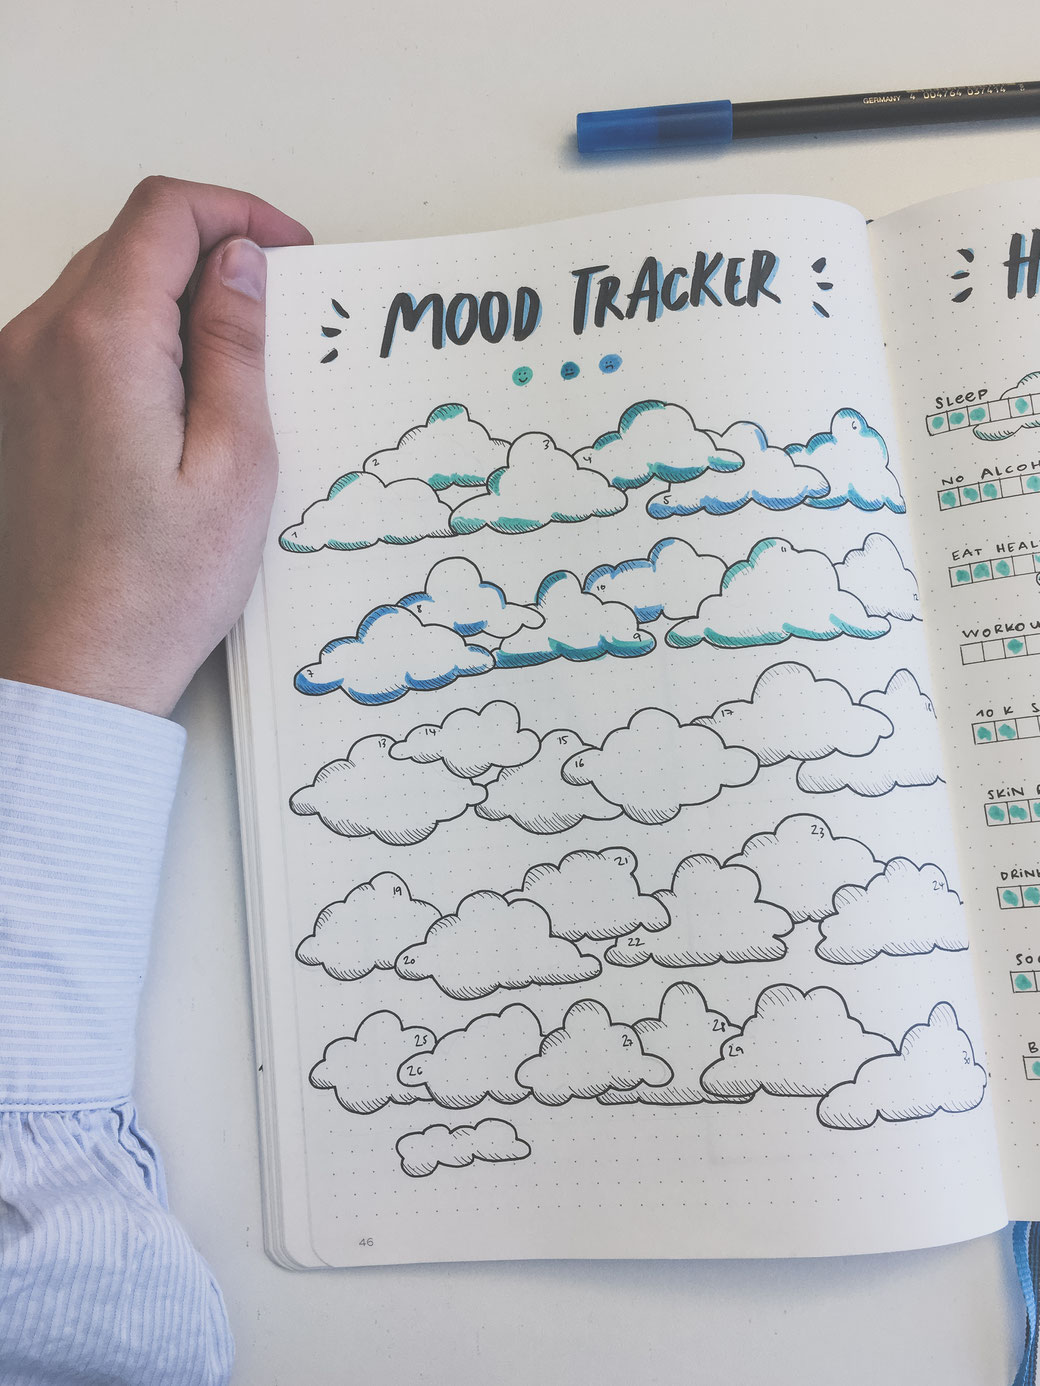 GERMANY 4 004764 037414
MOOD TRACKER
1 2 3 4 5 6
7 8 9 10 11 12
13 14 15 16 17 18
19 20 21 22 23 24
25 26 27 28 29 30
46
H
SLEEP
NO ALCOH
EAT HEAL
WORKOU
10 K S
SKIN
DRINK
SO
B